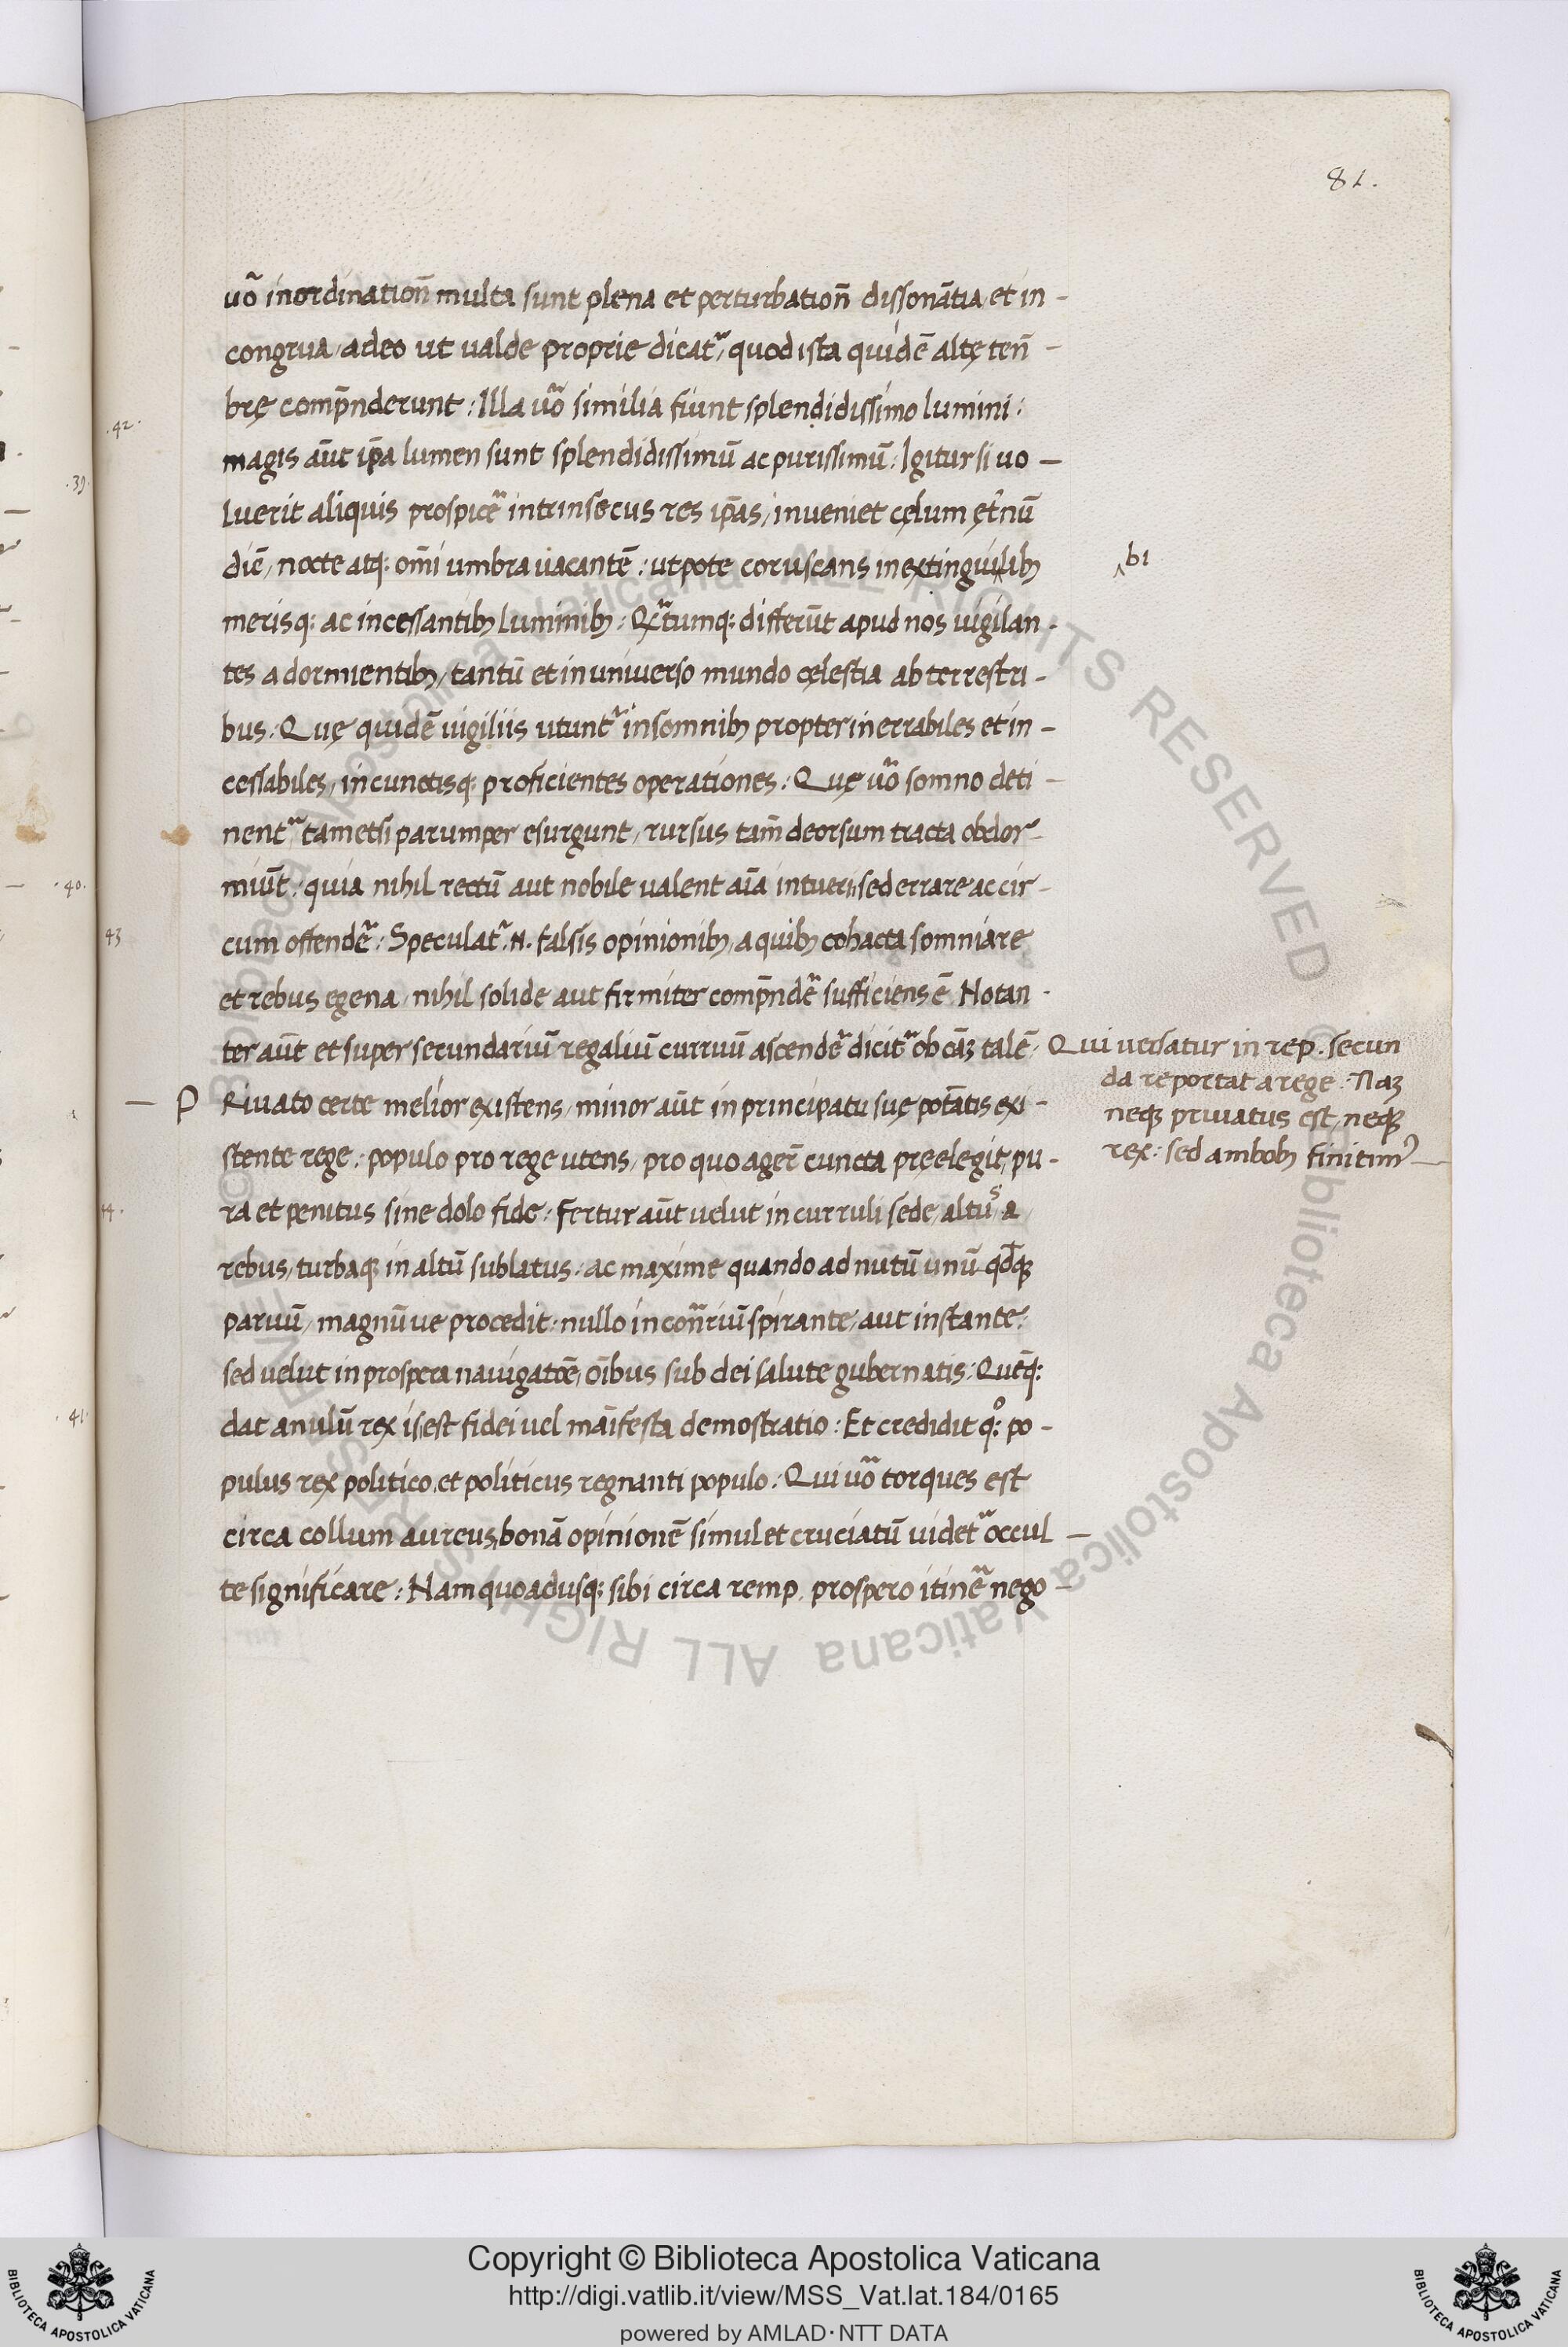 81.
uo᷉ inordination̄ multa sunt plena et perturbation̄ dissonātia, et in-
congrua, adeo ut ualde proprie dicat᷑, quod ista quidē altę ten̄-
brę comp̄nderunt: Illa uo᷉ similia fiunt splendidissimo lumini:
.42.
magis aūt ip̄a lumen sunt splendidissimū ac purissimū: Igitur si uo-
luerit aliquis prospice᷑ intrinsecus res ip̄as, inueniet cęlum ęt̓nū
diē, nocte atq: om̄i umbra uacantē: utpote coruscans inextinguilibꝫ
‸bi
merisq: ac incessantibꝫ luminibꝫ: Q᷑tumq: differūt apud nos uigilan-
tes a dormientibꝫ, tantū et in uniuerso mundo cęlestia ab terrestri-
bus: Quę quidē uigiliis utunt᷑ insomnibꝫ propter inerrabiles et in-
cessabiles, in cunctisq: proficientes operationes: Quę uo᷉ somno deti-
nent᷑ tametsi parumper esurgunt, rursus tam̄ deorsum tracta obdor-
miūt: quia nihil rectū aut nobile ualent aīa intueri, sed errare ac cir-
43
cum offende᷑: Speculat᷑ .n. falsis opinionibꝫ, a quibꝫ cohacta somniare
et rebus egena, nihil solide aut firmiter comp̄nde᷑ sufficiens ē Notan-
ter aūt et super secundariū regaliū curruū ascende᷑ dicit᷑ ob cāꝫ talē:
Qui uersatur in rep. secun
da reportat a rege: Naꝫ
neqꝫ priuatus est, neqꝫ
rex: sed ambobꝫ finitimꝰ
P Riuato certe melior existens, minor aūt in principatu suę pot̄atis exi-
stente rege: populo pro rege utens, pro quo ager̄ cuncta pręelegit, pu-
44.
ra et penitus sine dolo fide: fertur aūt uelut in curruli sede, altuˢ a
rebus, turbaqꝫ in altū sublatus: ac maxime quando ad nutū unū qd̄qꝫ
paruū, magnū ue procedit: nullo in con᷑riū spirante, aut instante:
sed uelut in prospera nauigatōe, oībus sub dei salute gubernatis: Quēq:
dat anulū rex is, est fidei uel māifesta demostratio: Et credidit q:° po-
pulus rex politico, et politicus regnanti populo: Qui uo᷉ torques est
circa collum aureus, bonā opinionē simul et cruciatū uidet᷑ occul-
te significare: Nam quoadusq: sibi circa remp. prospero itine᷑ nego-
.39.
.40.
.41.
© Biblioteca Apostolica Vaticana ALL RIGHTS RESERVED
Copyright © Biblioteca Apostolica Vaticana
http://digi.vatlib.it/view/MSS_Vat.lat.184/0165
powered by AMLAD·NTT DATA
BIBLIOTECA APOSTOLICA VATICANA
BIBLIOTECA APOSTOLICA VATICANA